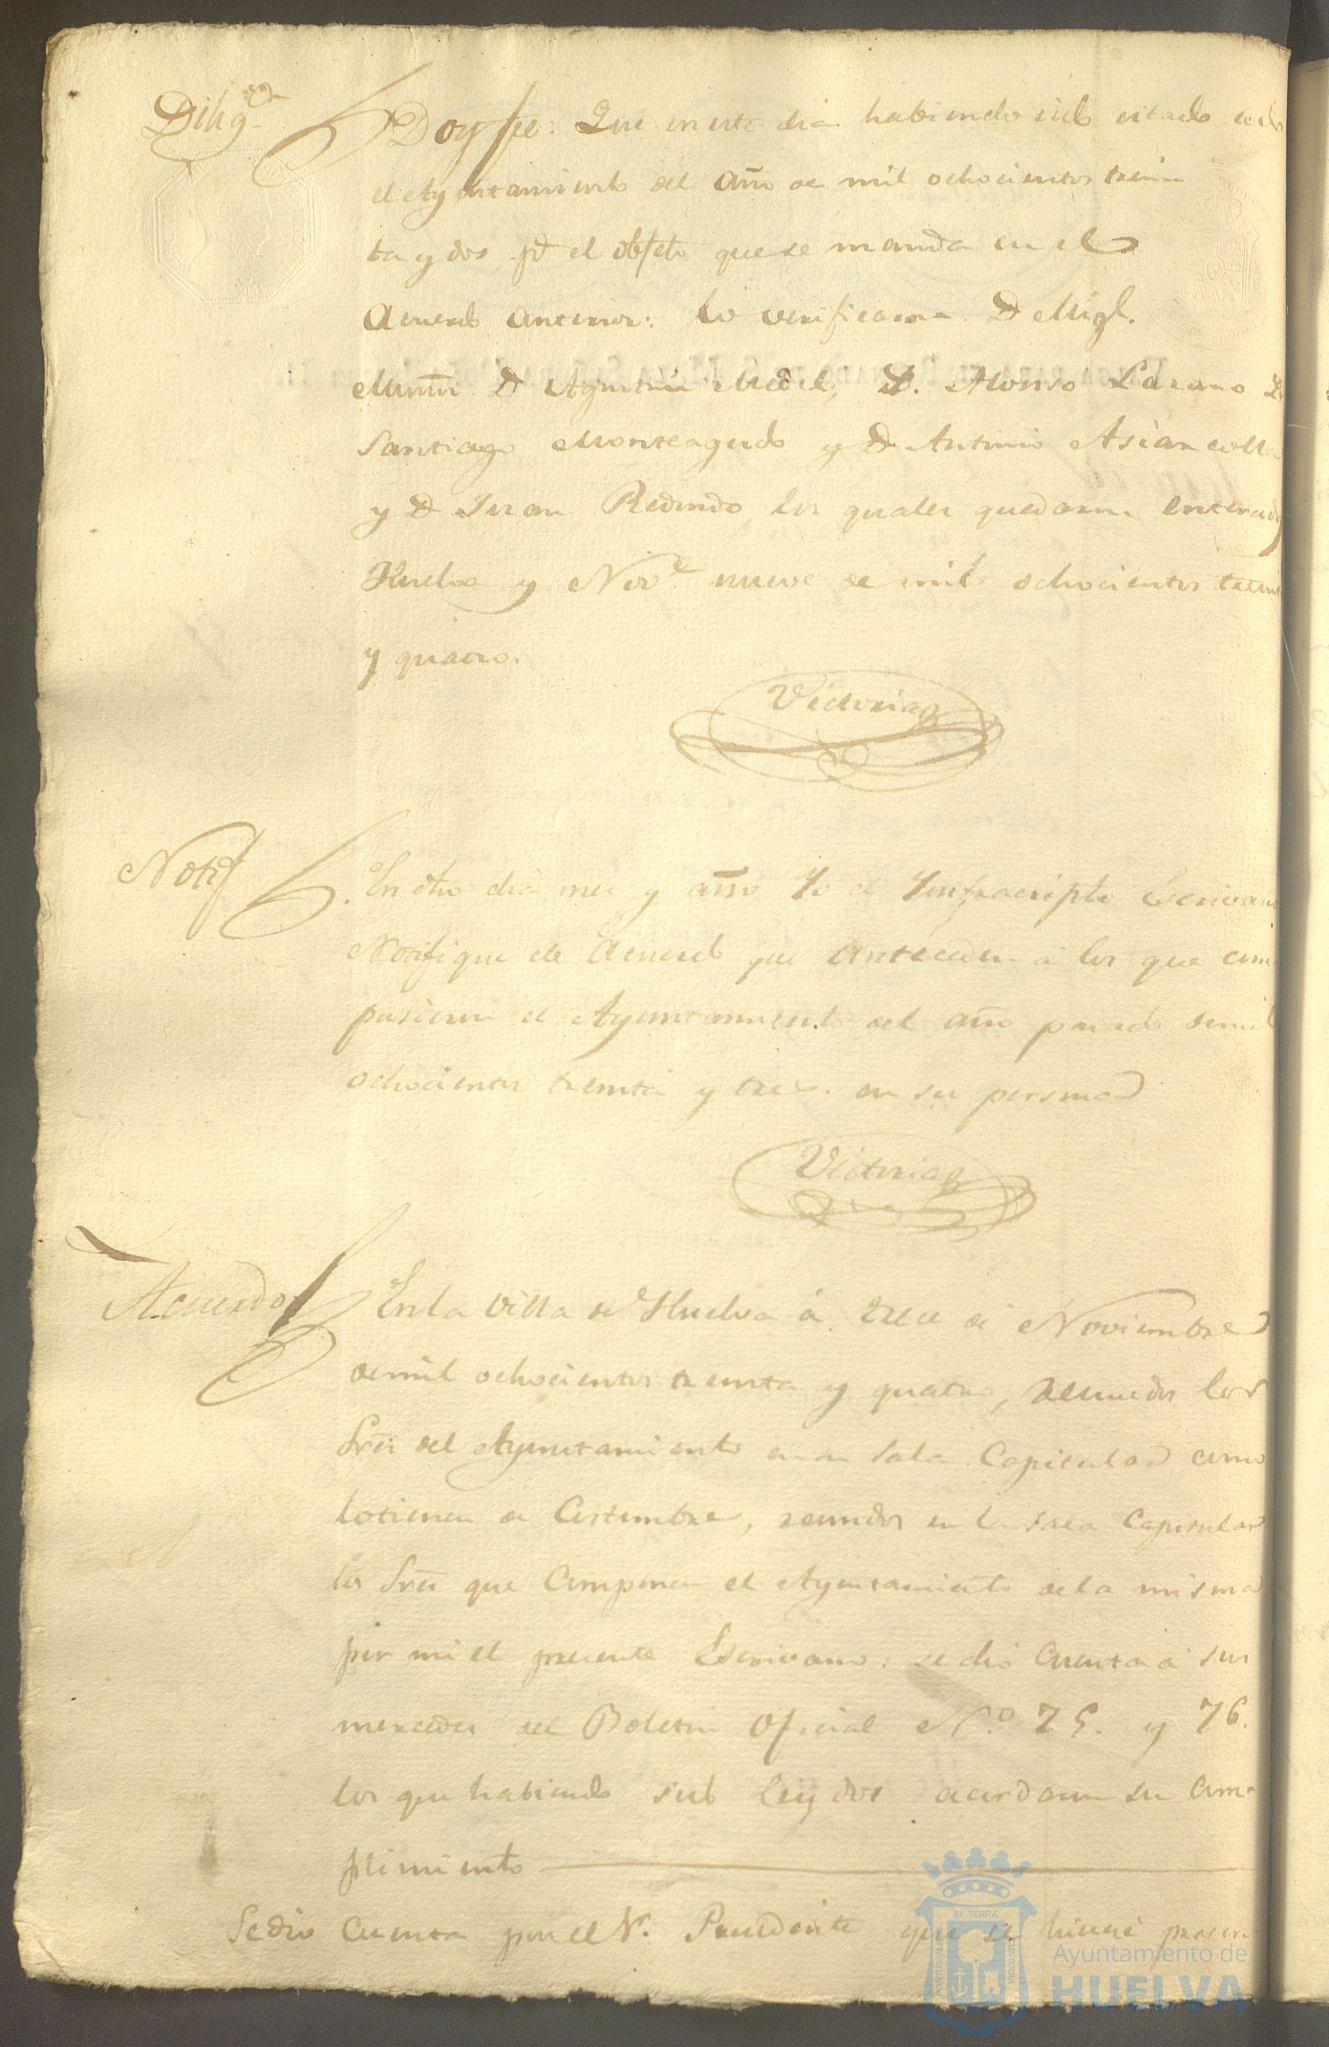 Dilig.ª
Doy fe: Que en este dia habiendo sido citado todo
el Ayuntamiento del Año de mil ochocientos trein
ta y dos pª el objeto que se manda en el
Acuerdo anterior: lo verificaron Dn Migl.
D Agustin D. Alonso Lazaro Dn
Santiago Monteagudo y D Antonio Asian
y D Juan Redondo, los quales quedaron enterados
Huelva y Nov.e nueve de mil ochocientos treinta
y quatro.
Victoria
Notif
En dho dia mes y año Yo el Ynfraescripto Escrivano
Notifique el Acuerdo que antecede a los que com
pusieron el Ayuntamiento del año pasado de mil
ochocientos treinta y tres. en su persona
Victoria
Acuerdo
En la Villa de Huelva á trece de Noviembre
de mil ochocientos treinta y quatro, reunidos los
Sres del Ayuntamiento en su Sala Capitular como
lo tienen de Costumbre, reunidos en la sala Capitular
los Sres que Componen el Ayuntamiento de la misma
por mi el presente Escrivano; se dio Cuenta á sus
mercedes del Boletin Oficial N.o 75. y 76.
los que habiendo sido leydos acordaron su Cum
plimiento
Se dio Cuenta por el Sr. Presidente que se
ET TERRÆ
Ayuntamiento de
HUELVA